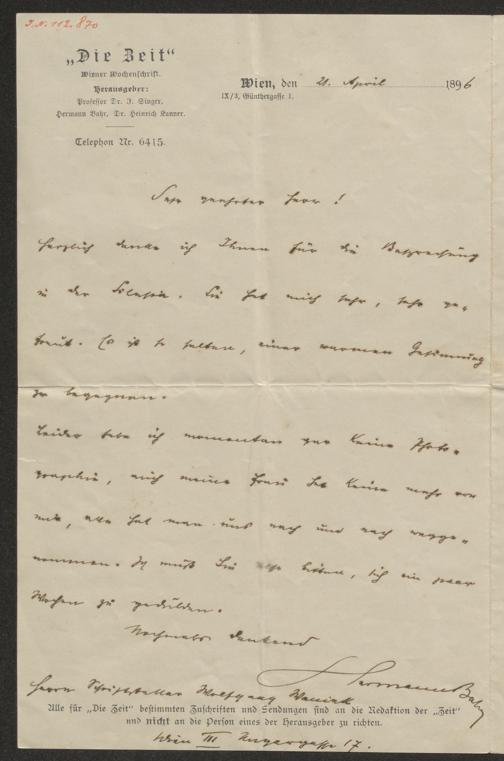 I.N. 112.870
„Die Zeit“
Wiener Wochenschrift.
Herausgeber:
Professor Dr. I. Singer,
Hermann Bahr, Dr. Heinrich Kanner.
Telephon Nr. 6415.
Wien, den 21. April 1896
IX/3, Günthergasse 1.
Sehr geehrter Herr!
Herzlich danke ich Ihnen für die Besprechung
in der Silesia. Sie hat mich sehr, sehr ge-
freut. Es ist so selten, einer warmen Gesinnung
zu begegnen.
Leider habe ich momentan gar keine Photo-
graphie, auch meine Frau hat keine mehr von
mir, alle hat man uns nach und nach wegge-
nommen. Ich muß Sie also bitten, sich ein paar
Wochen zu gedulden.
Nochmals dankend
Hermann Bahr
Herrn Schriftsteller Wolfgang
Alle für „Die Zeit“ bestimmten Zuschriften und Sendungen sind an die Redaktion der „Zeit“
und nicht an die Person eines der Herausgeber zu richten.
Wien III Ungargasse 17.